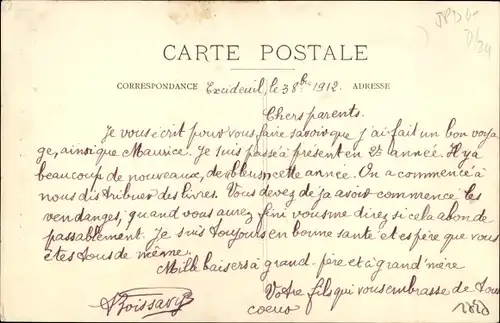 CARTE POSTALE
CORRESPONDANCE Excideuil, le 3 8bre 1912. ADRESSE
Chers parents.
Je vous écrit pour vous faire savoir que j'ai fait un bon voya
ge, ainsi que Maurice. Je suis passé à présent en 2e année. Il y a
beaucoup de nouveaux, de bleus cette année. On a commencé à
nous distribuer des livres. Vous devez déja avoir commencé les
vendanges, quand vous aurez fini vous me direz si cela abonde
passablement. Je suis toujours en bonne santé et espère que vous
êtes tous de même.
Mille baisers à grand-père et à grand'mère
Votre fils qui vous embrasse de tout
coeur
Boissavy